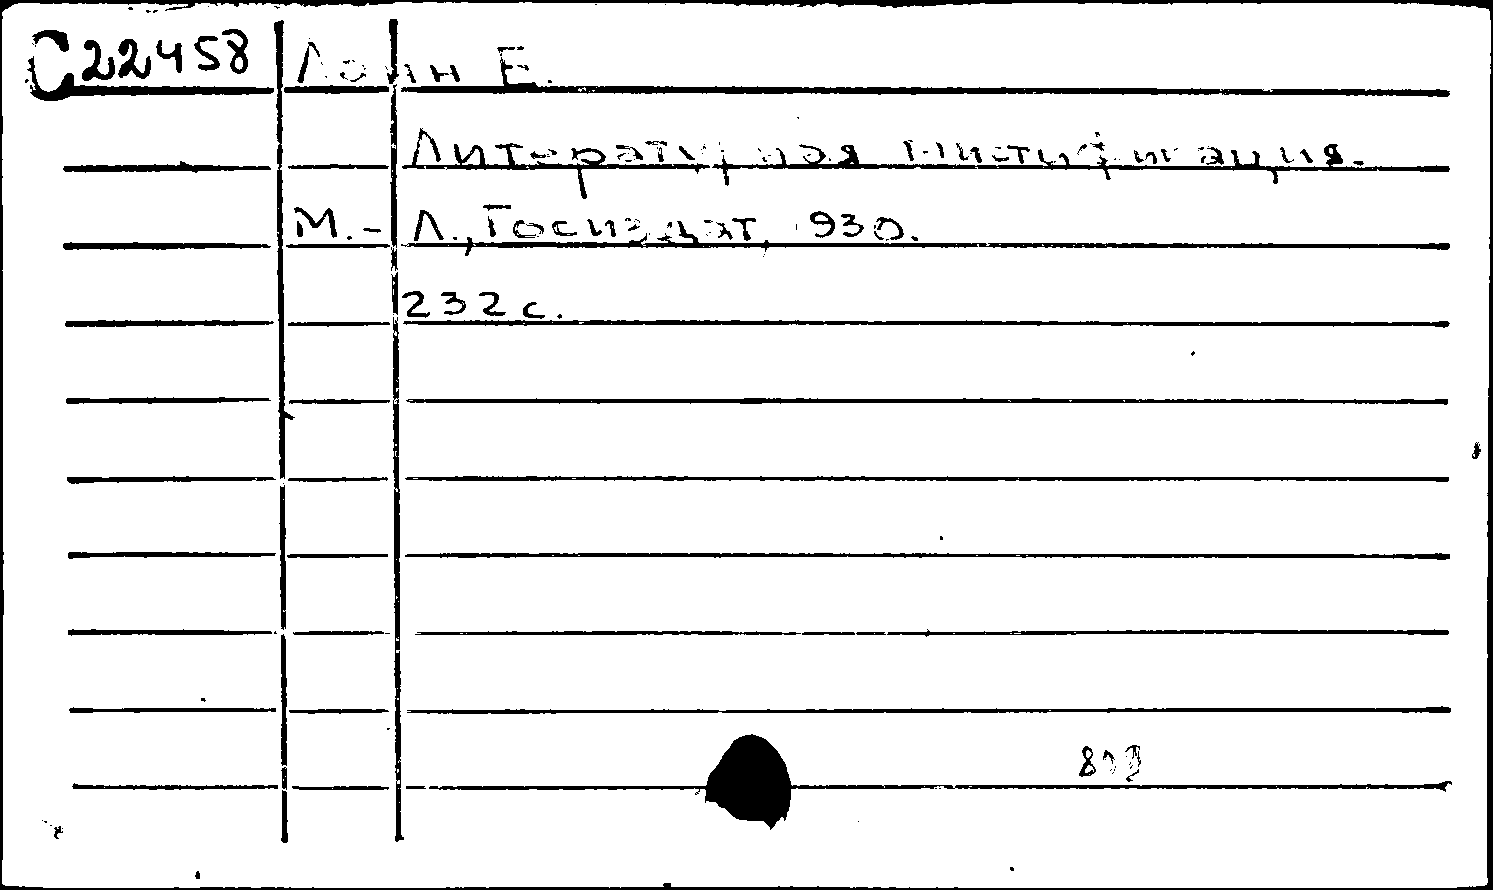 С22458 Лоин Е.
Литературная мистификация.
М.-Л., Госиздат, 930.
232 с.